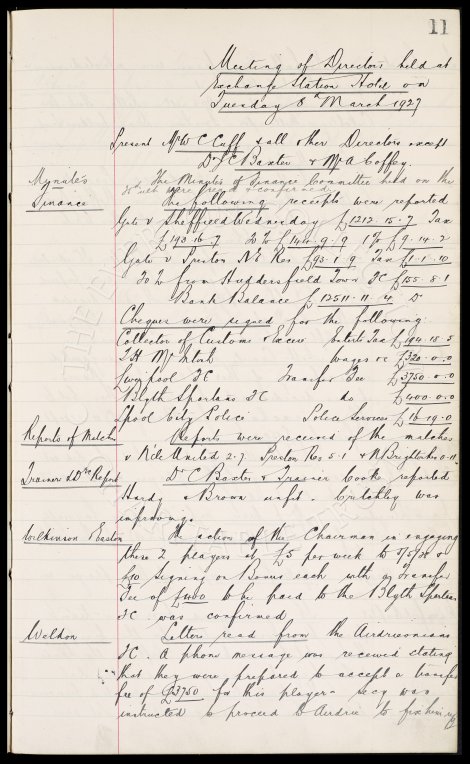 11
Meeting of Directors held at
Exchange Station Hotel on
Tuesday 8th March 1927
Present Mr W C Cuff & all other Directors except
Dr J C Baxter & Mr A Coffey.
Mynute's The Minutes of Finance Committee held on the
were read & confirmed.
Finance The following receipts were reported
Gate v Sheffield Wednesday £1212.15.7 Tax
£193.16.7 20% £144.9.9 1% £9.14.2
Gate v Preston N E Res £95.1.9 Tax £1.1.10
20% from Huddersfield Town FC £155.8.1
Bank Balance £12511.11.4 D
Cheques were signed for the following:
Collector of Customs & Excise Enterts Tax £194.18.5
T H McIntosh wages &c £320.0.0
Liverpool FC Transfer Fee £3750.0.0
Blyth Spartans FC do £400.0.0
Lpool City Police Police Services £16.19.0
Reports of Matches Reports were received of the matches
v N'cle United 2-7 Preston Res 5-1 & N Brighton
Trainer & Drs Report Dr C Baxter & Trainer Cooke reported
Hardy & Brown unfit. Critchley was
improving.
Wilkinson Easton The action of the Chairman in engaging
these 2 players at £5 per week to 5/5/28 &
£10 Signing on Bonus each with a Transfer
Fee of £400 to be paid to the Blyth Spartans
FC was confirmed
Weldon Letters read from the Airdrieonians
FC. A phone message was received stating
that they were prepared to accept a transfer
fee of £3750 for this player - secy was
instructed to proceed to Airdrie to fix him up